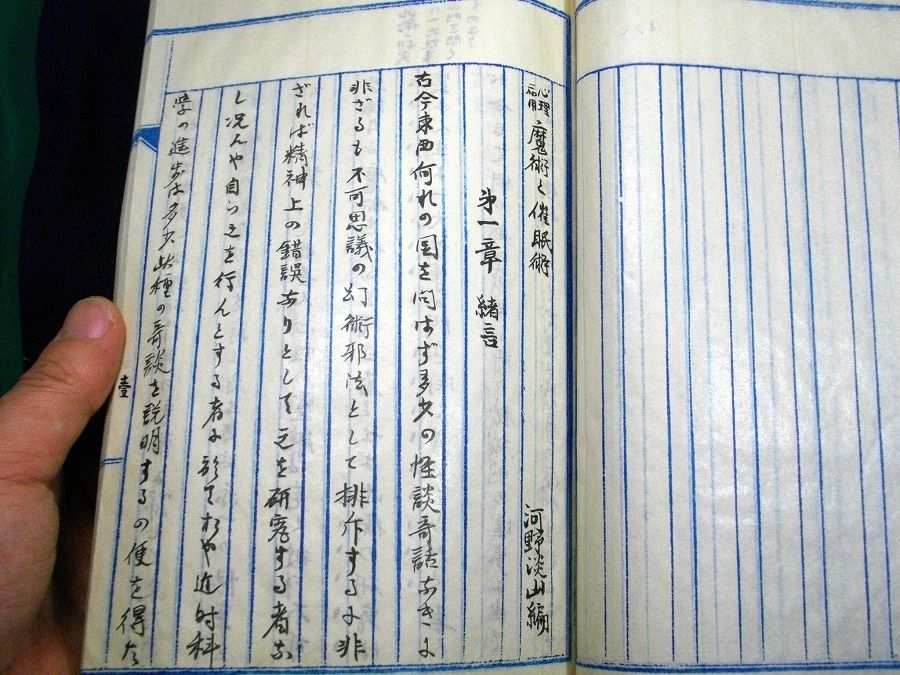 心理
応用
魔術と催眠術
河野淡山編
第一章 緒言
古今東西何れの国を問はず多少の怪談奇話なきに
非ざるも不可思議の幻術邪法として排斥するに非
ざれば精神上の錯誤なりとして之を研究する者な
し况んや自ら之を行んとする者に於ておや近時科
学の進歩は多少此種の奇談を説明するの便を得た
壹